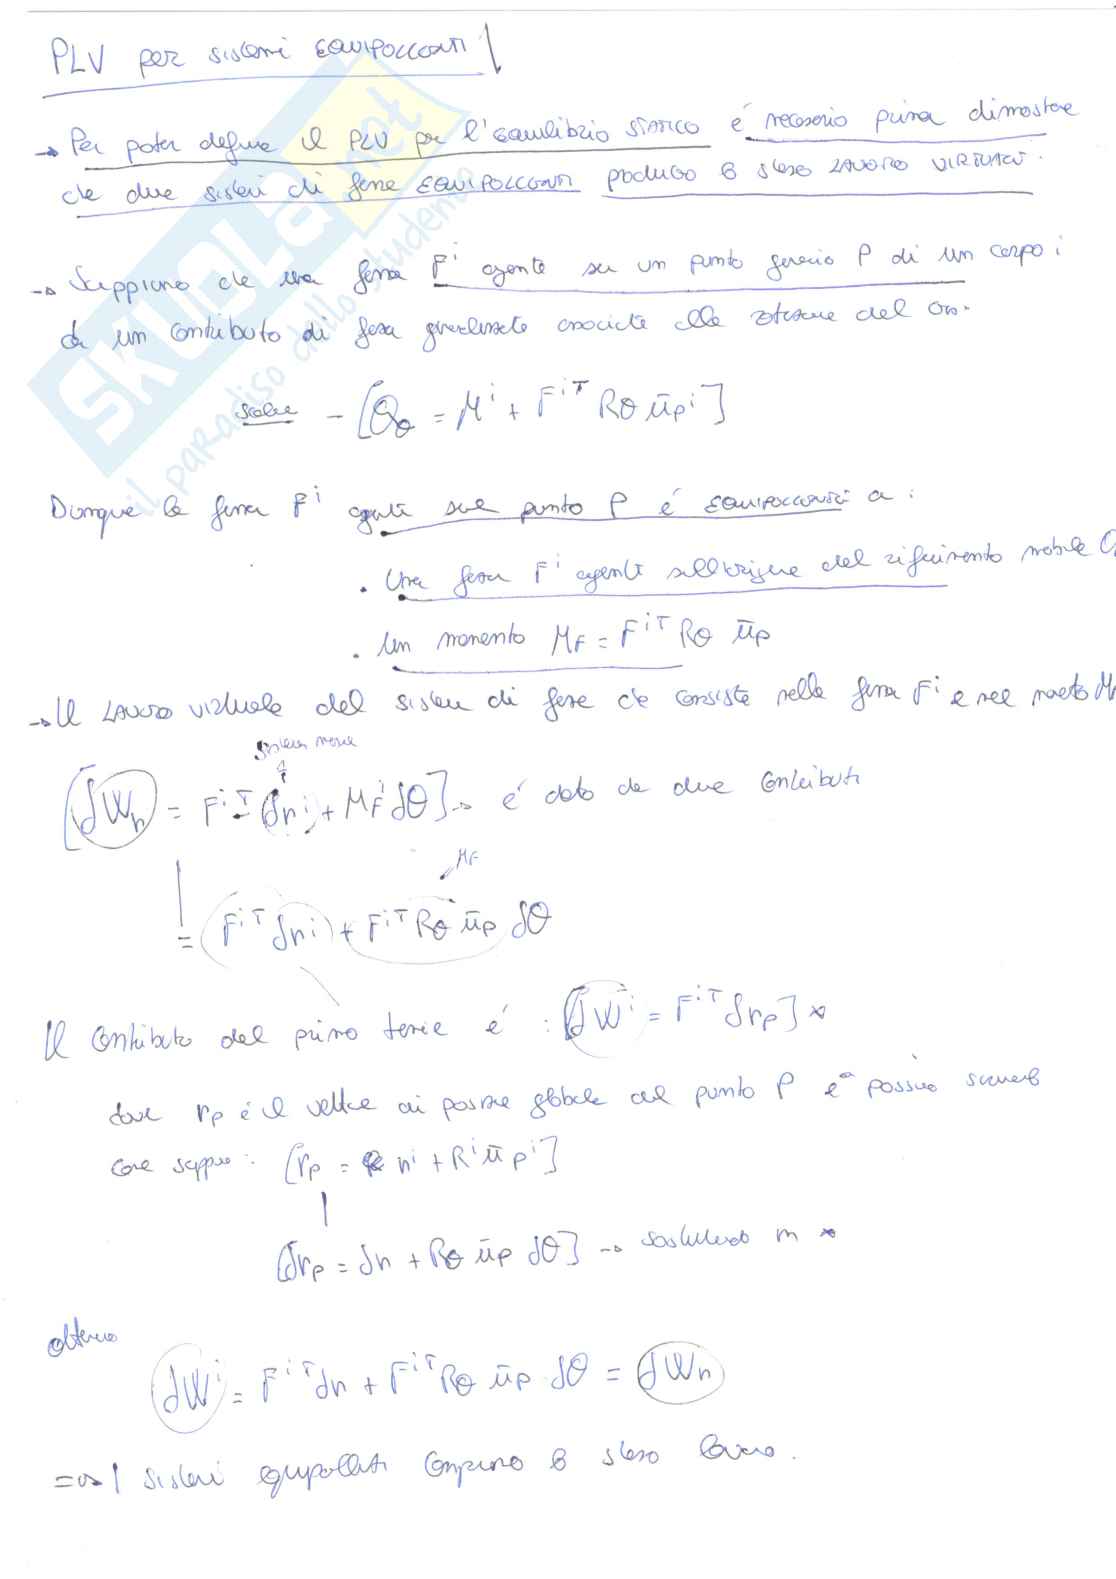 PLV per sistemi EQUIPOLLENTI
→ Per poter definire il PLV per l'equilibrio STATICO é necessario prima dimostrare
che due sistemi di forze EQUIPOLLENTI producono lo stesso LAVORO VIRTUALE.
→ Sappiamo che una forza F^i agente su un punto generico P di un corpo i
da un contributo di forza generalizzata associata alla rotazione del
- [Qθ = M^i + F^iT Rθ ūp^i]
Dunque la forza F^i agente sul punto P é EQUIPOLLENTE a :
• Una forza F^i agente sull'origine del riferimento mobile O
• Un momento MF = F^iT Rθ ūp
→ Il LAVORO virtuale del sistema di forze che consiste nella forza F^i e nel momento MF
[δWn = F^iT δn^i + MF^i δθ] → é dato da due contributi
MF
= F^iT δn^i + F^iT Rθ ūp δθ
Il contributo del primo é : [δW^i = F^iT δrp] *
dove rp é il vettore di posizione globale del punto P e possiamo scriverlo
come sappiamo : [rp = n^i + R^i ūp^i]
[δrp = δn + Rθ ūp δθ] → sostituendo in *
ottengo
δW^i = F^iT δn + F^iT Rθ ūp δθ = δWn
=> I sistemi equipollenti compiono lo stesso lavoro.
SKUOLA.net
il paradiso dello studente